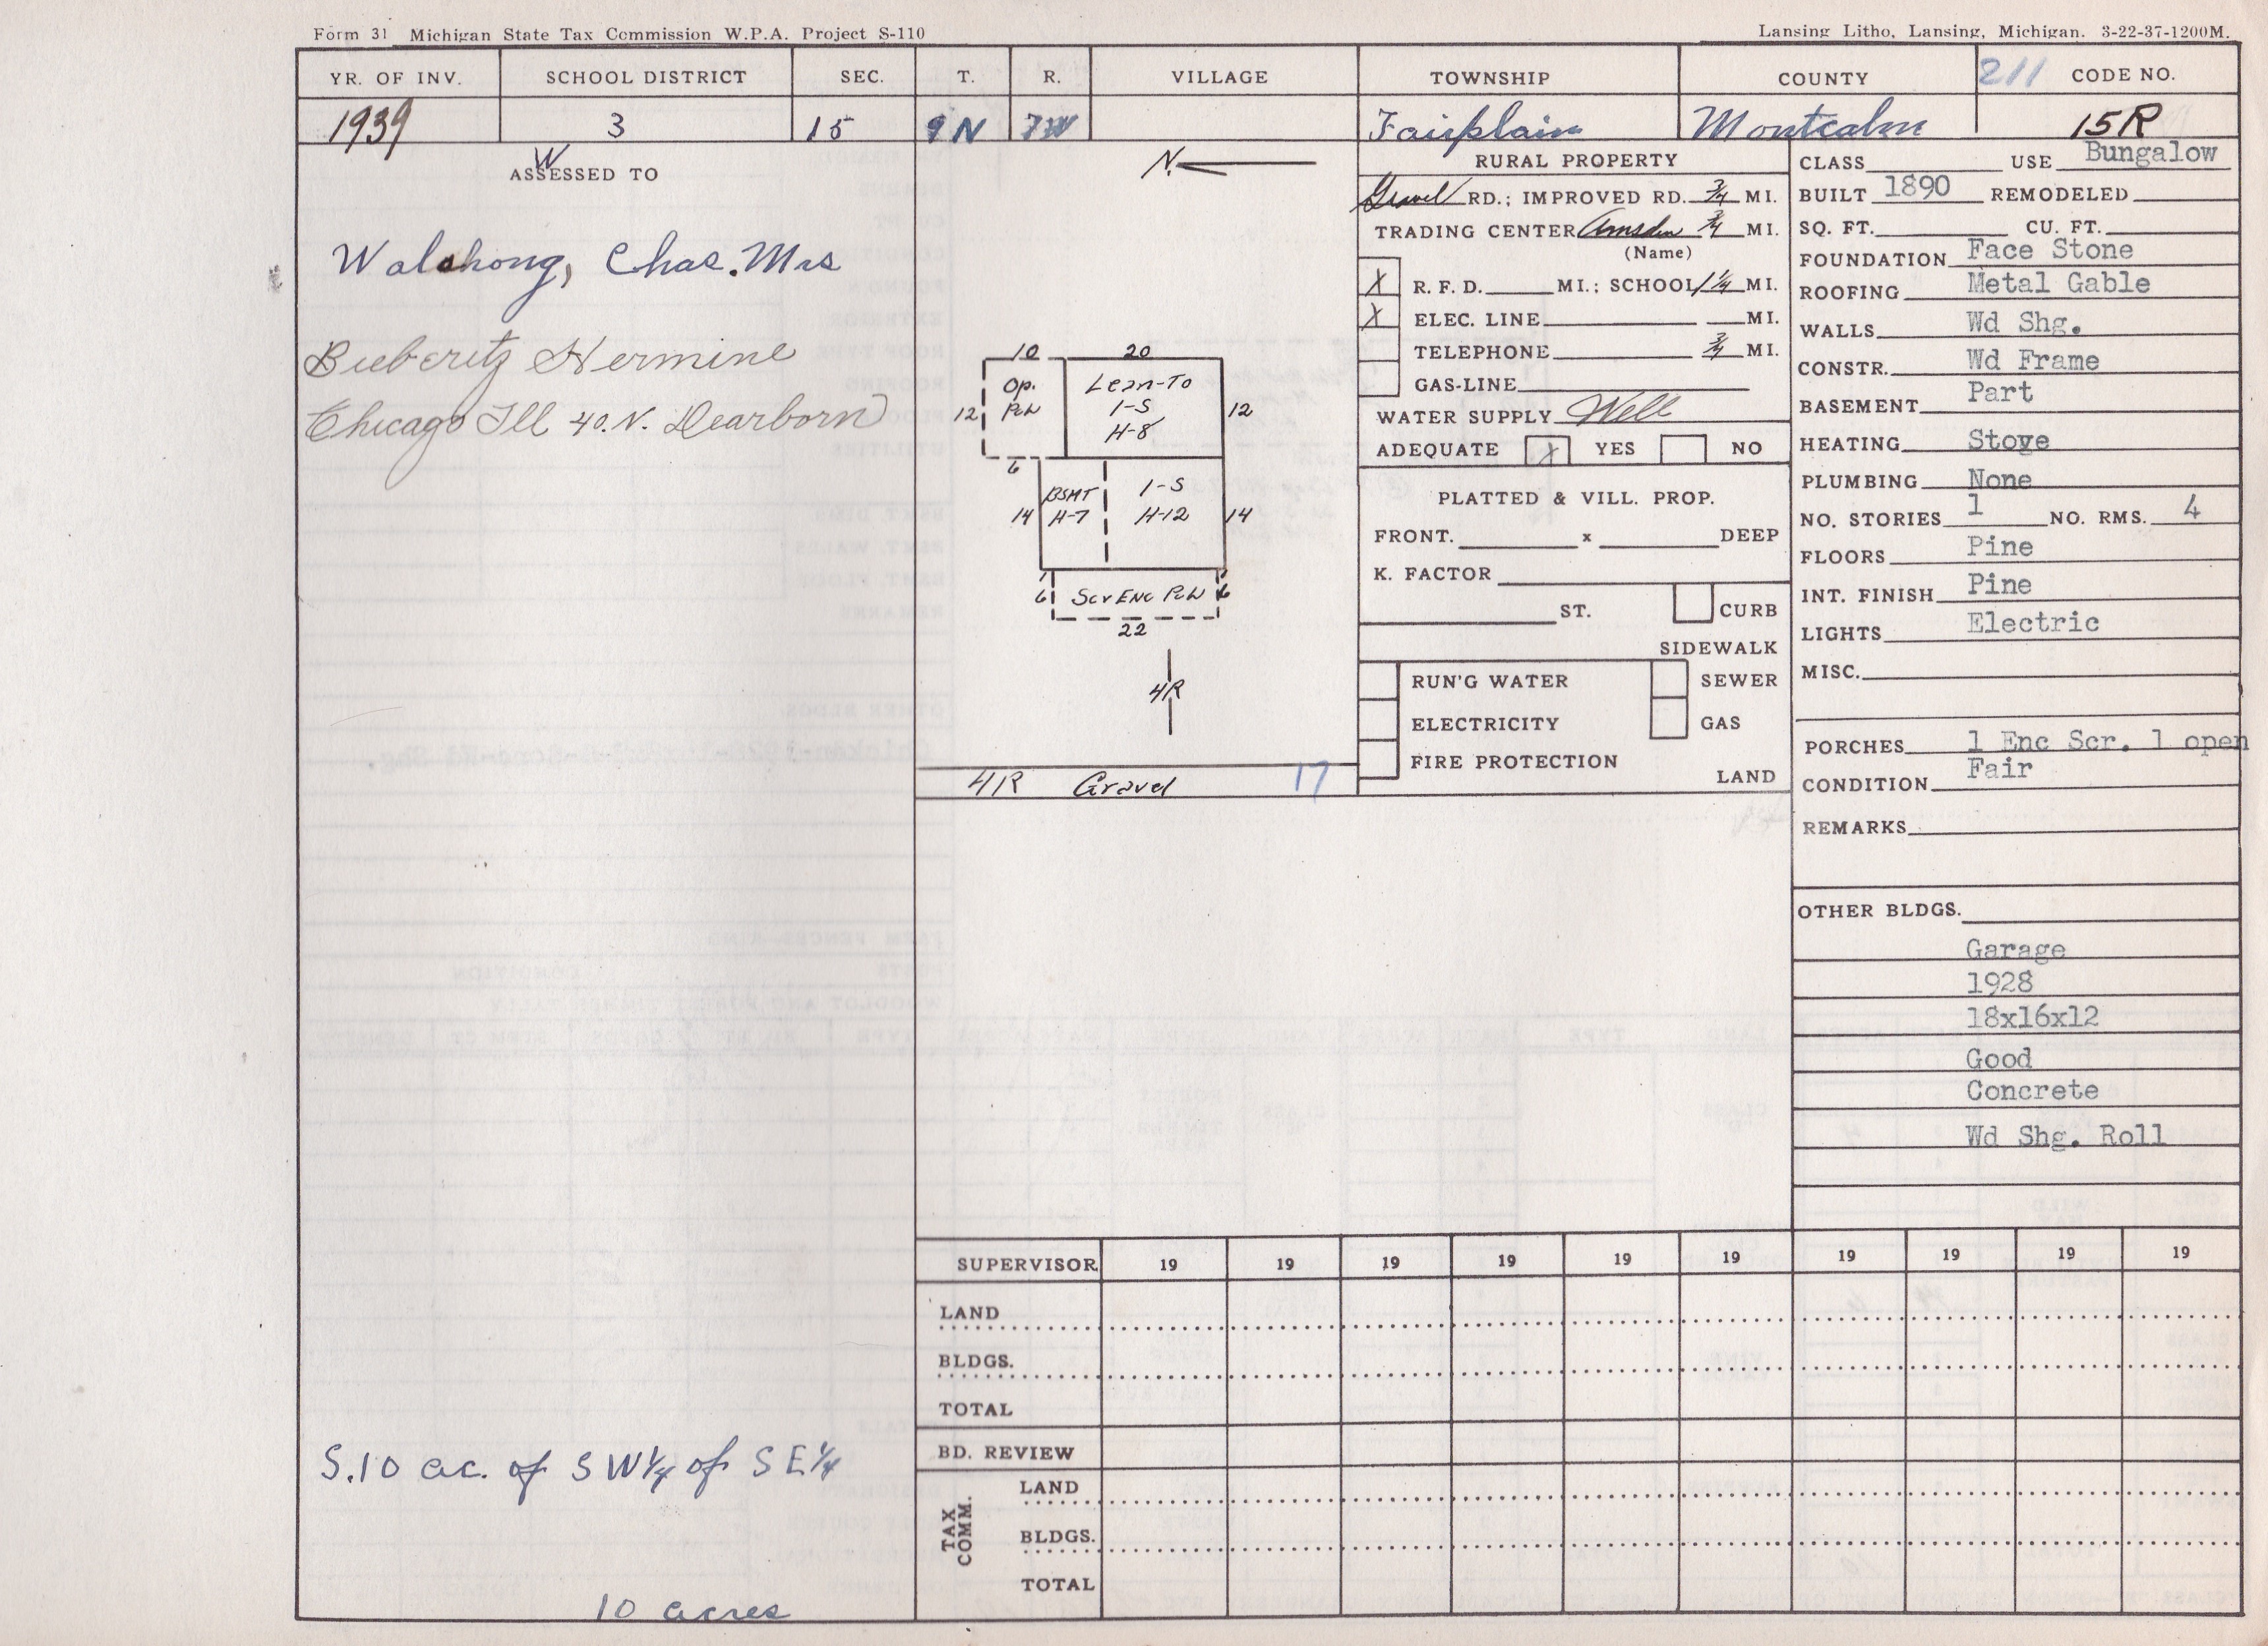 Form 31 Michigan State Tax Commission W.P.A. Project S-110
Lansing Litho, Lansing, Michigan. 3-22-37-1200M.
YR. OF INV. SCHOOL DISTRICT SEC. T. R. VILLAGE TOWNSHIP COUNTY 211 CODE NO.
1939 3 15 9N 7W Fairplain Montcalm 15R
W
ASSESSED TO
Walshong, Chas. Mrs
Bieberitz Hermine
Chicago Ill 40. N. Dearborn
S.10 ac. of SW¼ of SE¼
10 acres
N
10 20
Op. Pch
Lean-To
1-S
H-8
12 12
6
BSMT
H-7
1-S
H-12
14 14
6 Scr ENC Pch 6
22
4R
4R Gravel 17
RURAL PROPERTY
Gravel RD.; IMPROVED RD. ¾ MI.
TRADING CENTER Amsden ¾ MI.
(Name)
X R. F. D. MI.; SCHOOL 1¼ MI.
X ELEC. LINE MI.
TELEPHONE ¾ MI.
GAS-LINE
WATER SUPPLY Well
ADEQUATE X YES NO
PLATTED & VILL. PROP.
FRONT. x DEEP
K. FACTOR
ST. CURB
SIDEWALK
RUN'G WATER SEWER
ELECTRICITY GAS
FIRE PROTECTION
LAND
CLASS USE Bungalow
BUILT 1890 REMODELED
SQ. FT. CU. FT.
FOUNDATION Face Stone
ROOFING Metal Gable
WALLS Wd Shg.
CONSTR. Wd Frame
BASEMENT Part
HEATING Stove
PLUMBING None
NO. STORIES 1 NO. RMS. 4
FLOORS Pine
INT. FINISH Pine
LIGHTS Electric
MISC.
PORCHES 1 Enc Scr. 1 open
CONDITION Fair
REMARKS
OTHER BLDGS.
Garage
1928
18x16x12
Good
Concrete
Wd Shg. Roll
SUPERVISOR 19 19 19 19 19 19 19 19 19 19
LAND
BLDGS.
TOTAL
BD. REVIEW
TAX COMM.
LAND
BLDGS.
TOTAL